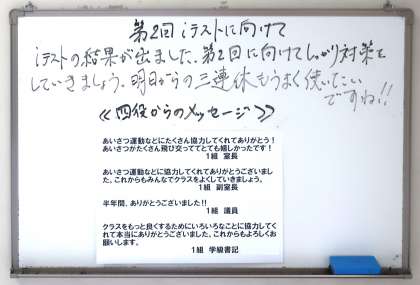 第2回iテストに向けて
iテストの結果が出ました、第2回に向けてしっかり対策を
していきましょう。明日からの三連休もうまく使いたい
ですね!!
≪四役からのメッセージ≫
あいさつ運動などにたくさん協力してくれてありがとう！
あいさつがたくさん飛び交っててとても嬉しかったです！
1組 室長
あいさつ運動などに協力してくれてありがとうございまし
た。これからもみんなでクラスをよくしていきましょう。
1組 副室長
半年間、ありがとうございました!!
1組 議員
クラスをもっと良くするためにいろいろなことに協力してく
れて本当にありがとうございました。これからもよろしくお
願いします。
1組 学級書記